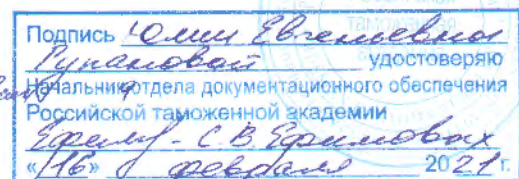 таможенная
Подпись Юлии Евгеньевны
Рупановой удостоверяю
Начальник отдела документационного обеспечения
Российской таможенной академии
С.В. Ефимовых
«16» февраля 2021 г.